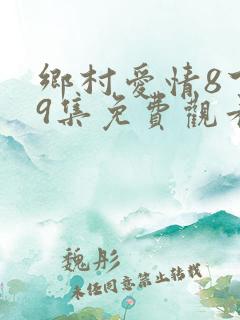 鄉村愛情8
9集免費觀
魏彤
未任同意禁止转载